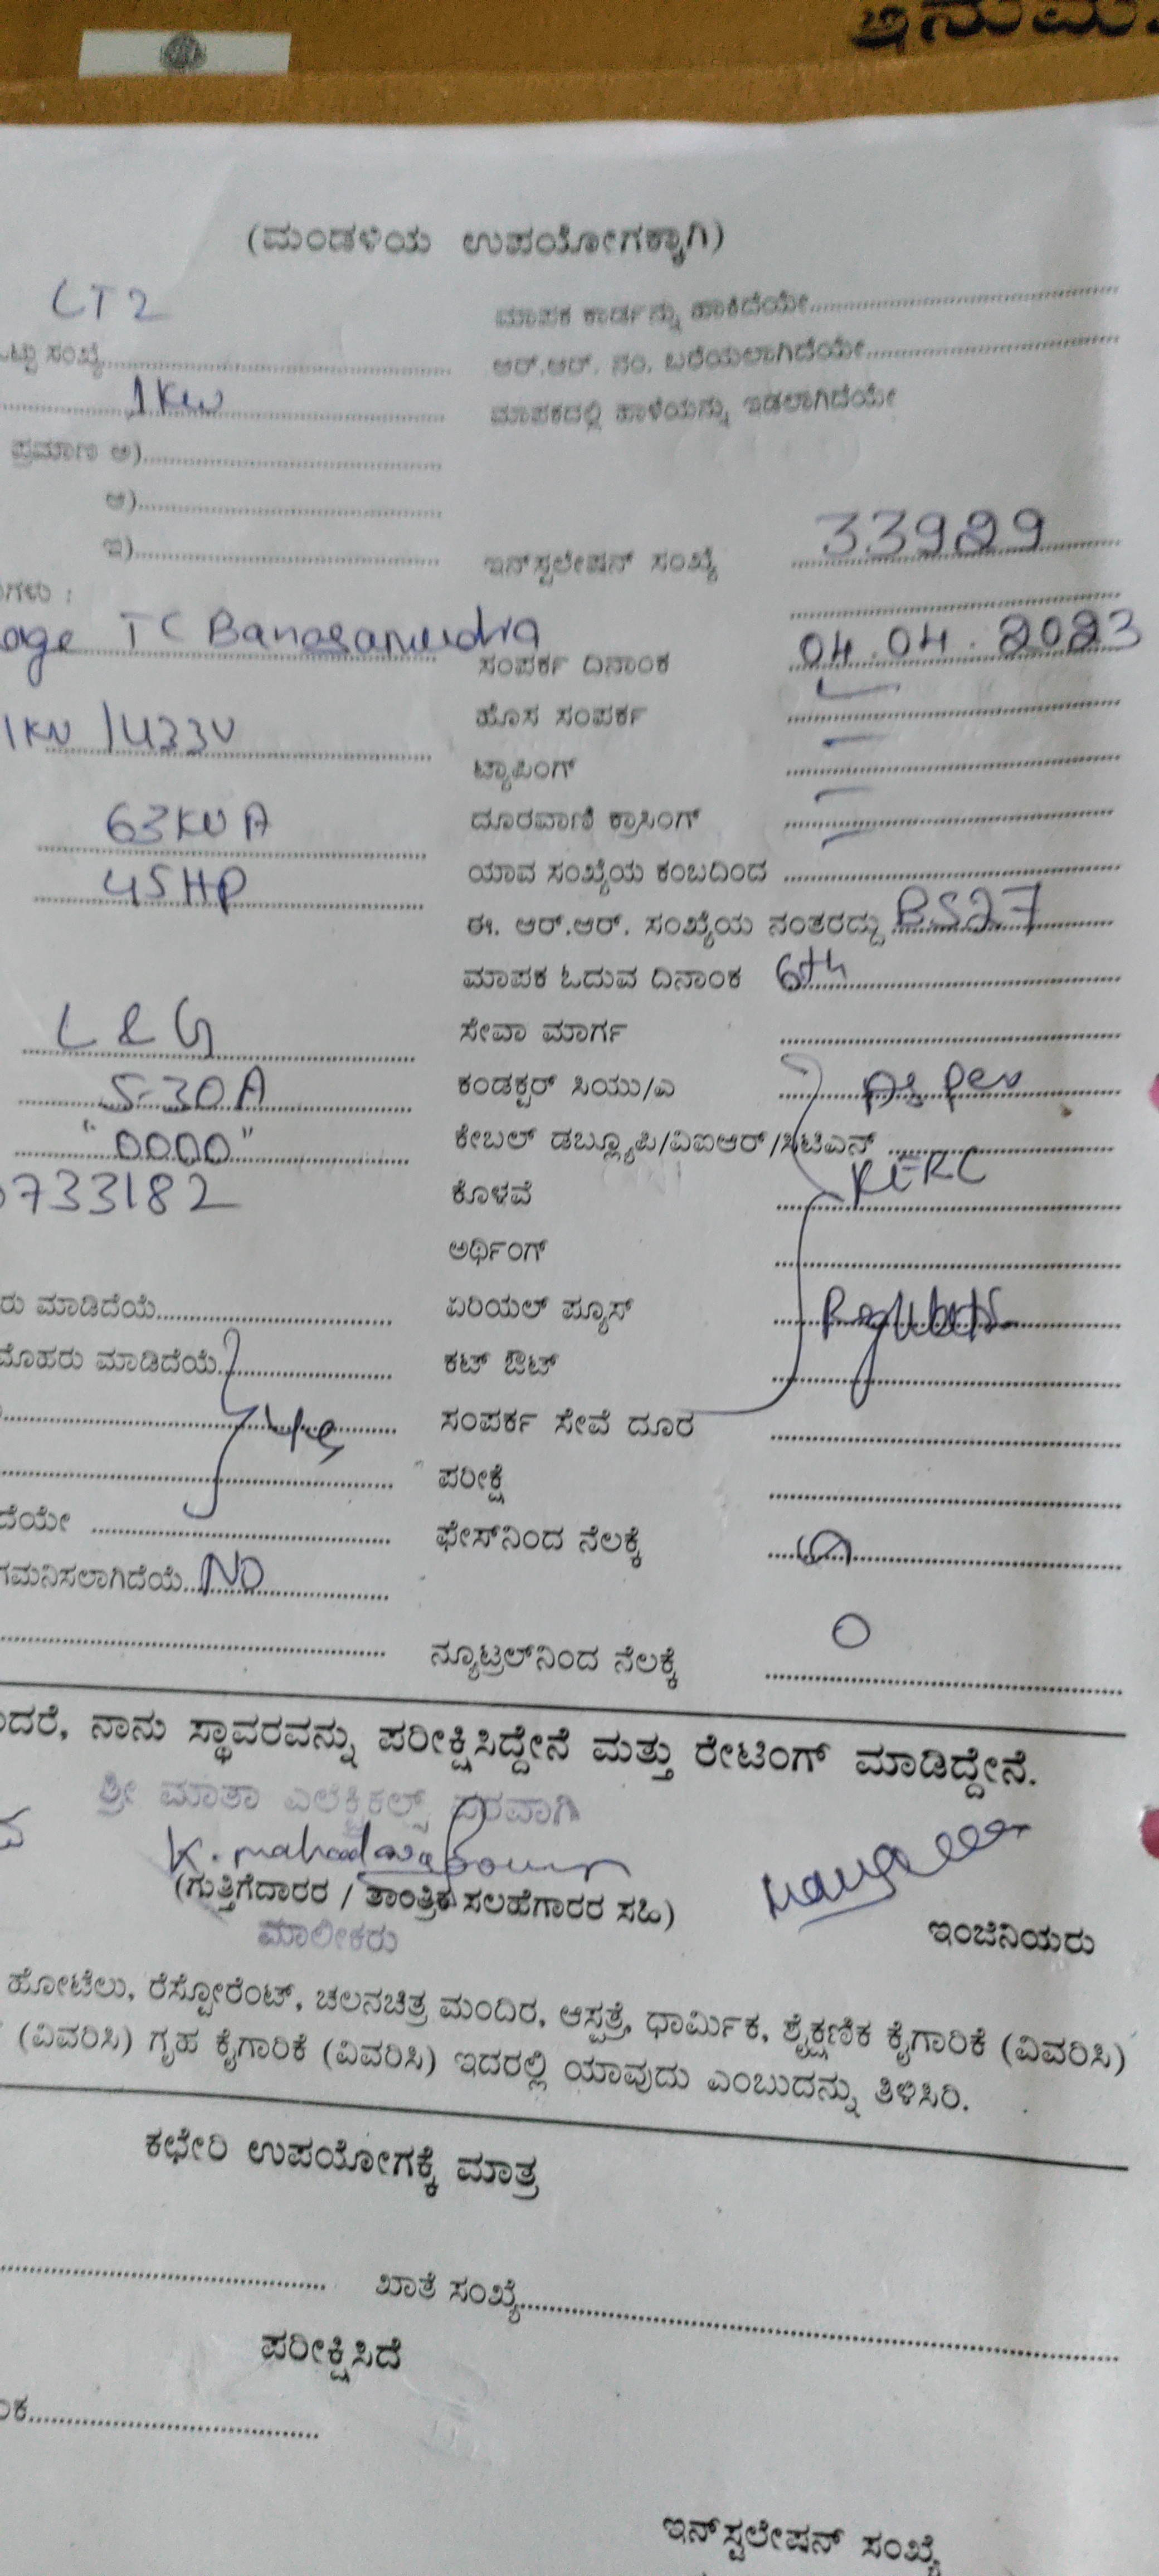 ಅನುಮ
(ಮಂಡಳಿಯ ಉಪಯೋಗಕ್ಕಾಗಿ)
LT 2
ಮಾಪಕ ಕಾರ್ಡನ್ನು ಹಾಕಿದೆಯೇ
ಸಂಖ್ಯೆ
ಆರ್.ಆರ್. ನಂ. ಬರೆಯಲಾಗಿದೆಯೇ
1Kw
ಮಾಪಕದಲ್ಲಿ ಹಾಳೆಯನ್ನು ಇಡಲಾಗಿದೆಯೇ
ಪ್ರಮಾಣ ಅ)
ಆ)
ಇ)
ಇನ್‌ಸ್ಟಲೇಷನ್ ಸಂಖ್ಯೆ 33929
ಗಳು :
age TC Banasamudra
ಸಂಪರ್ಕ ದಿನಾಂಕ 04.04.2023
1KV /433V
ಹೊಸ ಸಂಪರ್ಕ
ಟ್ಯಾಪಿಂಗ್
63KVA
ದೂರವಾಣಿ ಕ್ರಾಸಿಂಗ್
45HP
ಯಾವ ಸಂಖ್ಯೆಯ ಕಂಬದಿಂದ
ಈ. ಆರ್.ಆರ್. ಸಂಖ್ಯೆಯ ನಂತರದ್ದು BS27
ಮಾಪಕ ಓದುವ ದಿನಾಂಕ 6th
L&G
ಸೇವಾ ಮಾರ್ಗ
5-30A
ಕಂಡಕ್ಟರ್ ಸಿಯು/ಎ As per
"0000"
ಕೇಬಲ್ ಡಬ್ಲ್ಯೂಪಿ/ವಿಐಆರ್/ಸಿಟಿಎಸ್
733182
ಕೊಳವೆ KERC
ಅರ್ಥಿಂಗ್
ರು ಮಾಡಿದೆಯೆ
ಏರಿಯಲ್ ಪ್ಯೂಸ್
ಮೊಹರು ಮಾಡಿದೆಯೆ
ಕಟ್ ಔಟ್
Yes
ಸಂಪರ್ಕ ಸೇವೆ ದೂರ
ಪರೀಕ್ಷೆ
ದೆಯೇ
ಫೇಸ್‌ನಿಂದ ನೆಲಕ್ಕೆ
ಗಮನಿಸಲಾಗಿದೆಯೆ NO
ನ್ಯೂಟ್ರಲ್‌ನಿಂದ ನೆಲಕ್ಕೆ 0
ದರೆ, ನಾನು ಸ್ಥಾವರವನ್ನು ಪರೀಕ್ಷಿಸಿದ್ದೇನೆ ಮತ್ತು ರೇಟಿಂಗ್ ಮಾಡಿದ್ದೇನೆ.
ಶ್ರೀ ಮಾತಾ ಎಲೆಕ್ಟ್ರಿಕಲ್ಸ್ ಪರವಾಗಿ
(ಗುತ್ತಿಗೆದಾರರ / ತಾಂತ್ರಿಕ ಸಲಹೆಗಾರರ ಸಹಿ)
ಮಾಲೀಕರು
ಇಂಜಿನಿಯರು
ಹೋಟೆಲು, ರೆಸ್ಟೋರೆಂಟ್, ಚಲನಚಿತ್ರ ಮಂದಿರ, ಆಸ್ಪತ್ರೆ, ಧಾರ್ಮಿಕ, ಶೈಕ್ಷಣಿಕ ಕೈಗಾರಿಕೆ (ವಿವರಿಸಿ)
(ವಿವರಿಸಿ) ಗೃಹ ಕೈಗಾರಿಕೆ (ವಿವರಿಸಿ) ಇದರಲ್ಲಿ ಯಾವುದು ಎಂಬುದನ್ನು ತಿಳಿಸಿರಿ.
ಕಛೇರಿ ಉಪಯೋಗಕ್ಕೆ ಮಾತ್ರ
ಖಾತೆ ಸಂಖ್ಯೆ
ಪರೀಕ್ಷಿಸಿದೆ
ಂಕ
ಇನ್‌ಸ್ಟಲೇಷನ್ ಸಂಖ್ಯೆ